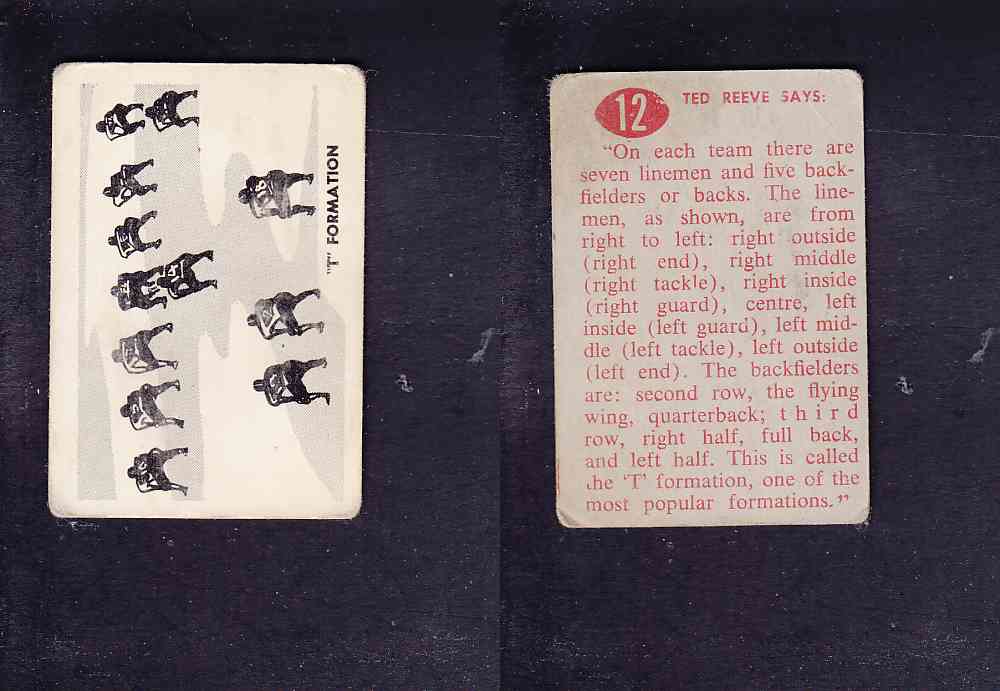 "T" FORMATION
12 TED REEVE SAYS:
“On each team there are
seven linemen and five back-
fielders or backs. The line-
men, as shown, are from
right to left: right outside
(right end), right middle
(right tackle), right inside
(right guard), centre, left
inside (left guard), left mid-
dle (left tackle), left outside
(left end). The backfielders
are: second row, the flying
wing, quarterback; third
row, right half, full back,
and left half. This is called
the 'T' formation, one of the
most popular formations.”